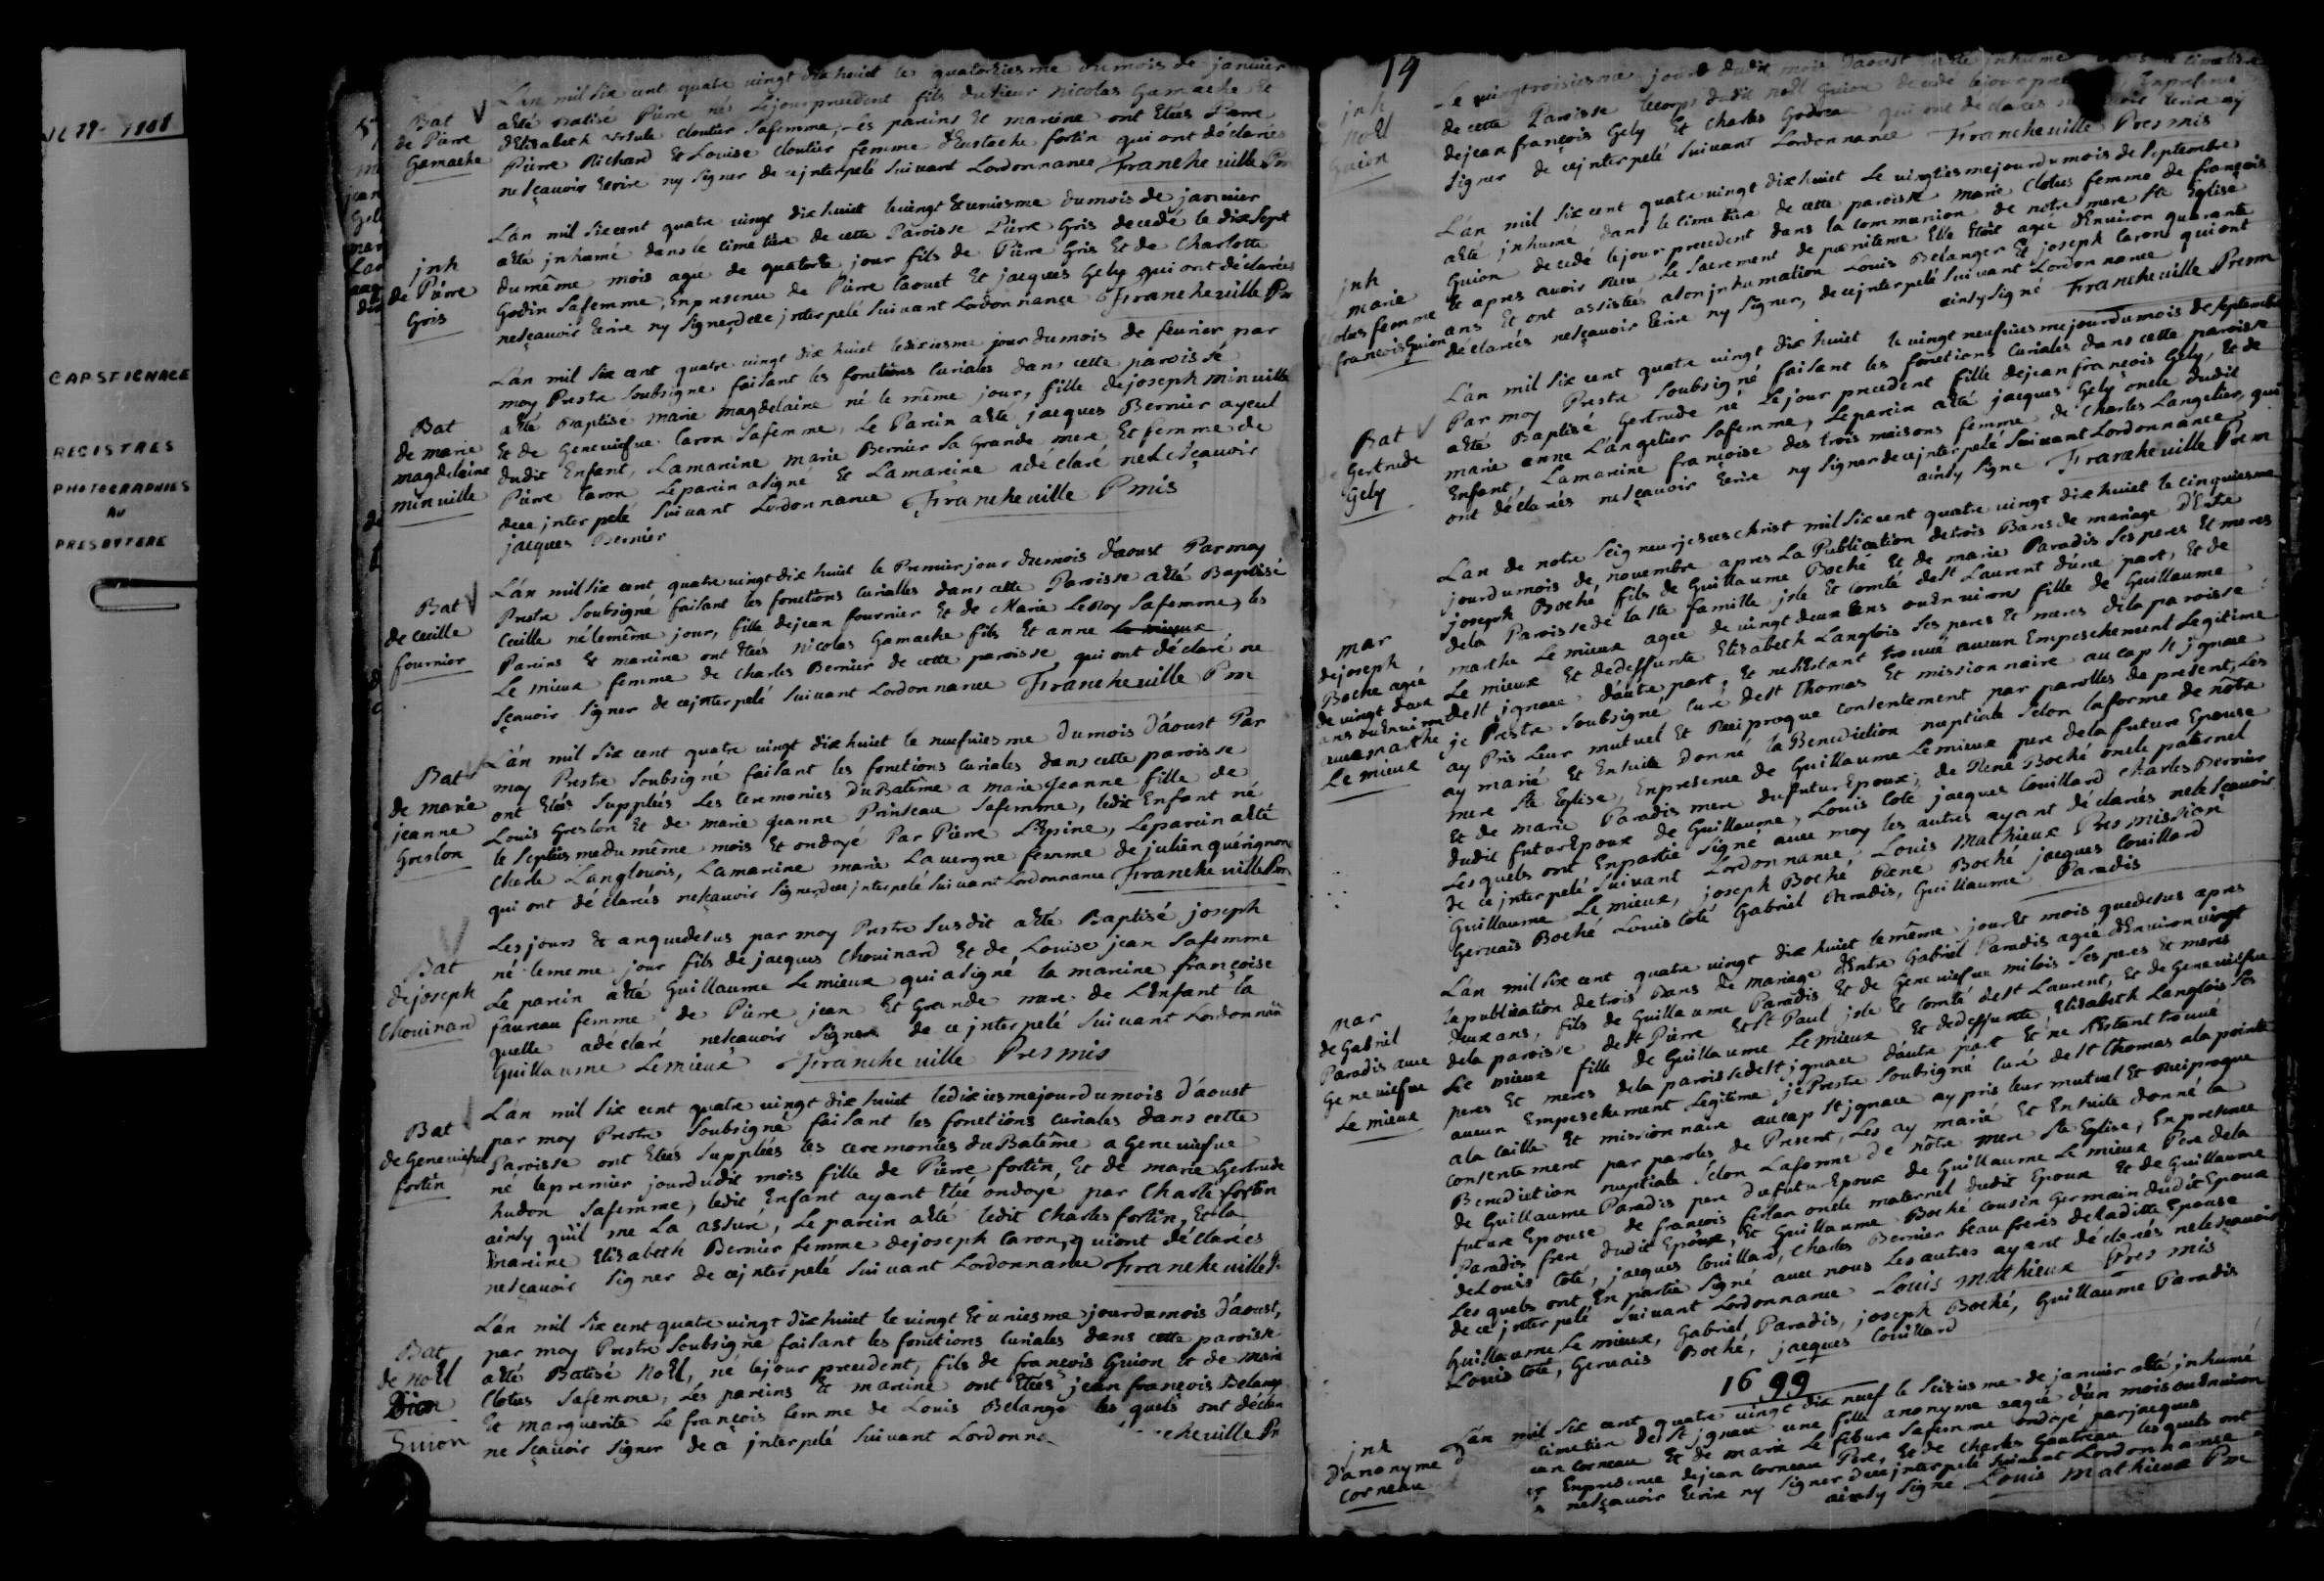 JL 79- 1968
CAP ST IGNACE
REGISTRES
PHOTOGRAPHIES
AU
PRESBYTERE
Bat
de Pierre
Gamache
L'an mil six cent quatre vingt dix huict le quatorziesme du mois de janvier
a esté Batisé Pierre né le jour precedent fils du sieur Nicolas Gamache et
d'Elisabeth ursule Cloutier sa femme, Les pareins et mareine ont Etées
Pierre Richard et Louise Cloutier femme d'Eustache fortin qui ont déclarés
ne sçavoir Ecrire ny signer de ce jnterpelé suivant Lordonnance Francheville
jnh
de Pierre
Gris
L'an mil six cent quatre vingt dix huict le vingt Et uniesme du mois de janvier
a esté jnhumé dans le cimetiere de cette Paroisse Pierre Gris decedé le dix sept
du même mois agé de quatorze jour fils de Pierre Gris Et de Charlotte
Godin sa femme, En presence de Pierre Caouet Et jacques Gely qui ont déclarés
ne sçavoir Ecrire ny signer de ce jnterpelé suivant Lordonnance Francheville
Bat
de marie
magdelaine
minville
L'an mil six cent quatre vingt dix huict le dixiesme jour du mois de fevrier par
moy Prestre soubsigné faisant les fonctions Curiales dans cette paroisse
a esté Baptisé marie magdelaine né le même jour, fille de joseph minville
Et de Geneviefve Caron sa femme, Le Parein a esté jacques Bernier ayeul
dudit Enfant, La mareine marie Bernier sa Grande mere Et femme de
Pierre Caron Le parein a signé Et La mareine a déclaré ne le sçavoir
de ce jnterpelé suivant Lordonnance Francheville Pmis
jacques Bernier
Bat
de cecille
fournier
L'an mil six cent quatre vingt dix huict le Premier jour du mois d'aoust Par moy
Prestre soubsigné faisant les fonctions Curialles dans cette Paroisse a esté Baptisé
Cecille né le même jour, fille de jean fournier et de Marie Le Roy sa femme, les
Pareins Et mareine ont Etés Nicolas Gamache fils Et anne le mieux
Le mieux femme de Charles Bernier de cette paroisse qui ont déclaré ne
sçavoir signer de ce jnterpelé suivant Lordonnance Francheville Pm
Bat
de marie
jeanne
Greslon
L'an mil six cent quatre vingt dix huict le neufviesme du mois d'aoust Par
moy Prestre soubsigné faisant les fonctions Curiales dans cette paroisse
ont Etés suppléés Les Ceremonies Du Batême a marie Jeanne fille de
Louis Greslon Et de marie jeanne Prinseau sa femme, ledit Enfant né
le septiesme du même mois Et ondoyé Par Pierre L'Epine, Le parein a esté
Charle Langlouois, La mareine marie Lavergne femme de julien quérignon
qui ont déclarés ne sçavoir signer de ce jnterpelé suivant Lordonnance Francheville
Bat
de joseph
Chouinard
Les jour Et an que desus par moy Prestre susdit a esté Baptisé joseph
né le meme jour fils de jacques Chouinard Et de Louise jean sa femme
Le parein a esté Guillaume Le mieux qui a signé la mareine françoise
faureau femme de Pierre jean Et Grande mere de L'Enfant la
quelle a déclaré ne sçavoir signer de ce jnterpelé suivant Lordonnan
Guillaume Lemieux Francheville Pres mis
Bat
de Genevieful
fortin
L'an mil six cent quatre vingt dix huict le dixiesme jour du mois d'aoust
par moy Prestre soubsigné faisant les fonctions curiales dans cette
Paroisse ont Etés suppléés les ceremonies du Batême a Genevieful
né le premier jour dudit mois fille de Pierre fortin, Et de marie Gertrude
hudon sa femme, ledit Enfant ayant Eté ondoyé par Charle fortin
ainsy qu'il me La assuré, Le parein a esté ledit Charles fortin, Et la
mareine Elisabeth Bernier femme de joseph Caron, qui ont déclarés
ne sçavoir signer de ce jnterpelé suivant Lordonnance Francheville
Bat
de Noel
Dion
Guion
L'an mil six cent quatre vingt dix huict le vingt Et uniesme jour du mois d'aoust,
par moy Prestre soubsigné faisant les fonctions Curiales dans cette paroisse
a esté Batisé Noel, né le jour precedent, fils de françois Guion et de Marie
Clotus sa femme, Les pareins Et mareine ont Etées jean françois Belang
Et marguerite Le françois femme de Louis Belangé les quels ont déclar
ne sçavoir signer de ce jnterpelé suivant Lordonna cheville
19
jnh
Noel
Guion
Le vingt troisiesme jour dudit mois daoust a esté jnhumé cimetiere
de cette Paroisse le corps dudit Noel Guion decedé le jour pre En presence
de jean françois Gely Et Charles Godreau qui ont declarés Ecrire ny
signer de ce jnterpelé suivant Lordonnance Francheville Pres mis
jnh
marie
clotus femme
de francois Guion
L'an mil six cent quatre vingt dix huict Le vingtiesme jour du mois de septembre
a esté jnhumé dans le cimetiere de cette paroisse marie Clotus femme de françois
Guion decedé le jour precedent dans la Communion de notre mere Ste Eglise
Et apres avoir Receu Le sacrement de paenitence Elle Etoit agée d'Environ quarante
ans Et ont assistés a son jnhumation Louis Belanger Et joseph Caron qui ont
déclarés ne sçavoir Ecrire ny signer, de ce jnterpelé suivant Lordonnance
ainsy signé Francheville
Bat
Gertrude
Gely
L'an mil six cent quatre vingt dix huict le vingt neufviesme jour du mois de septembre
Par moy Prestre soubsigné faisant les fonctions Curiales dans cette paroisse
a esté Baptisé Gertrude né Le jour precedent fille de jean françois Gely, Et de
marie anne L'angelier sa femme, Le parein a esté jacques Gely oncle dudit
Enfant, La mareine françoise des trois maisons femme de Charles Langelier, qui
ont déclarés ne sçavoir Ecrire ny signer de ce jnterpelé suivant Lordonnance
ainsy signé Francheville
mar
de joseph
Boché agé
de vingt deux
ans ou Environ
avec marthe
Le mieux
L'an de notre seigneur jesus christ mil six cent quatre vingt dix huict le cinquiesme
jour du mois de novembre apres La Publication de trois Bans de mariage d'Entre
joseph Boché fils de Guillaume Boché Et de marie Paradis ses peres Et meres
de la Paroisse de la Ste famille jsle Et Comté de St Laurent d'une part, Et de
marthe Le mieux agee de vingt deux ans ou Environs fille de Guillaume
Le mieux Et de deffunte Elisabeth Langlois ses peres Et meres de la paroisse
de St jgnace d'autre part, Et ne s'Estant trouvé aucun Empeschement Legitime
je Prestre soubsigné Curé de St thomas Et missionnaire au cap St jgnace
ay Pris Leur mutuel Et Reciproque Consentement par parolles de present, Les
ay marié Et Ensuite Donné la Benediction nuptiale selon la forme de nôtre
mere Ste Eglise, En presence de Guillaume Lemieux pere de la future Epouse
Et de marie Paradis mere du futur Epoux, de René Boché oncle paternel
dudit futur Epoux de Guillaume, Louis Coté, jacques Couillard Charles Bernier
Les quels ont En partie signé avec moy les autres ayant déclarés ne le sçavoir
de ce jnterpelé suivant Lordonnance, Louis Mathieux Pres mission
Guillaume Le mieux, joseph Boché René Boché jacques Couillard
Gervais Boché Louis Coté Gabriel Paradis, Guillaume Paradis
mar
de Gabriel
Paradis avec
Geneviefve
Le mieux
L'an mil six cent quatre vingt dix huict le même jour Et mois que desus apres
la publication de trois Bans de mariage d'Entre Gabriel Paradis agé d'Environ vingt
deux ans, fils de Guillaume Paradis Et de Genevieve milois ses peres Et meres
de la paroisse de St Pierre Et St Paul jsle Et Comté de St Laurent, Et de Genevieve
Le mieux fille de Guillaume Lemieux Et de deffunte Elisabeth Langlois ses
peres Et meres de la paroisse de St jgnace d'autre part Et ne s'Estant trouvé
aucun Empeschement Legitime je Prestre soubsigné Curé de St thomas a la pointe
a la Caille Et missionnaire au cap St jgnace ay pris leur mutuel Et Reciproque
consentement par paroles de Present, Les ay marié Et Ensuite donné la
Benediction nuptiale selon La forme de nôtre mere Ste Eglise, En presence
de Guillaume Paradis pere du futur Epoux de Guillaume Le mieux Pere de la
future Epouse de françois oncle maternel dudit Epoux Et de Guillaume
Paradis frere dudit Epoux, Et Guillaume Boché cousin Germain dudit Epoux
de Louis Coté, jacques Couillard, Charles Bernier beau freres de La ditte Epouse
Les quels ont En partie signé avec nous Les autres ayant déclarés ne le sçavoir
de ce jnterpelé suivant Lordonnance Louis Mathieux Pres mis
Guillaume Le mieux, Gabriel Paradis, joseph Boché, Guillaume Paradis
Louis Coté, Gervais Boché, jacques Couillard
1699
jnh
d'anonyme
Corneau
L'an mil six cent quatre vingt dix neuf le seiziesme de janvier a esté jnhumé
cimetiere de St jgnace une fille anonyme aagée d'un mois ou Environ
ean Corneau Et de marie Le febure sa femme ondoyé par jacques
En presence de jean Corneau Pere, Et de Charles Gautreau les quels ont
ne sçavoir Ecrire ny signer de ce jnterpelé suivant Lordonnance
ainsy signé Louis Mathieux